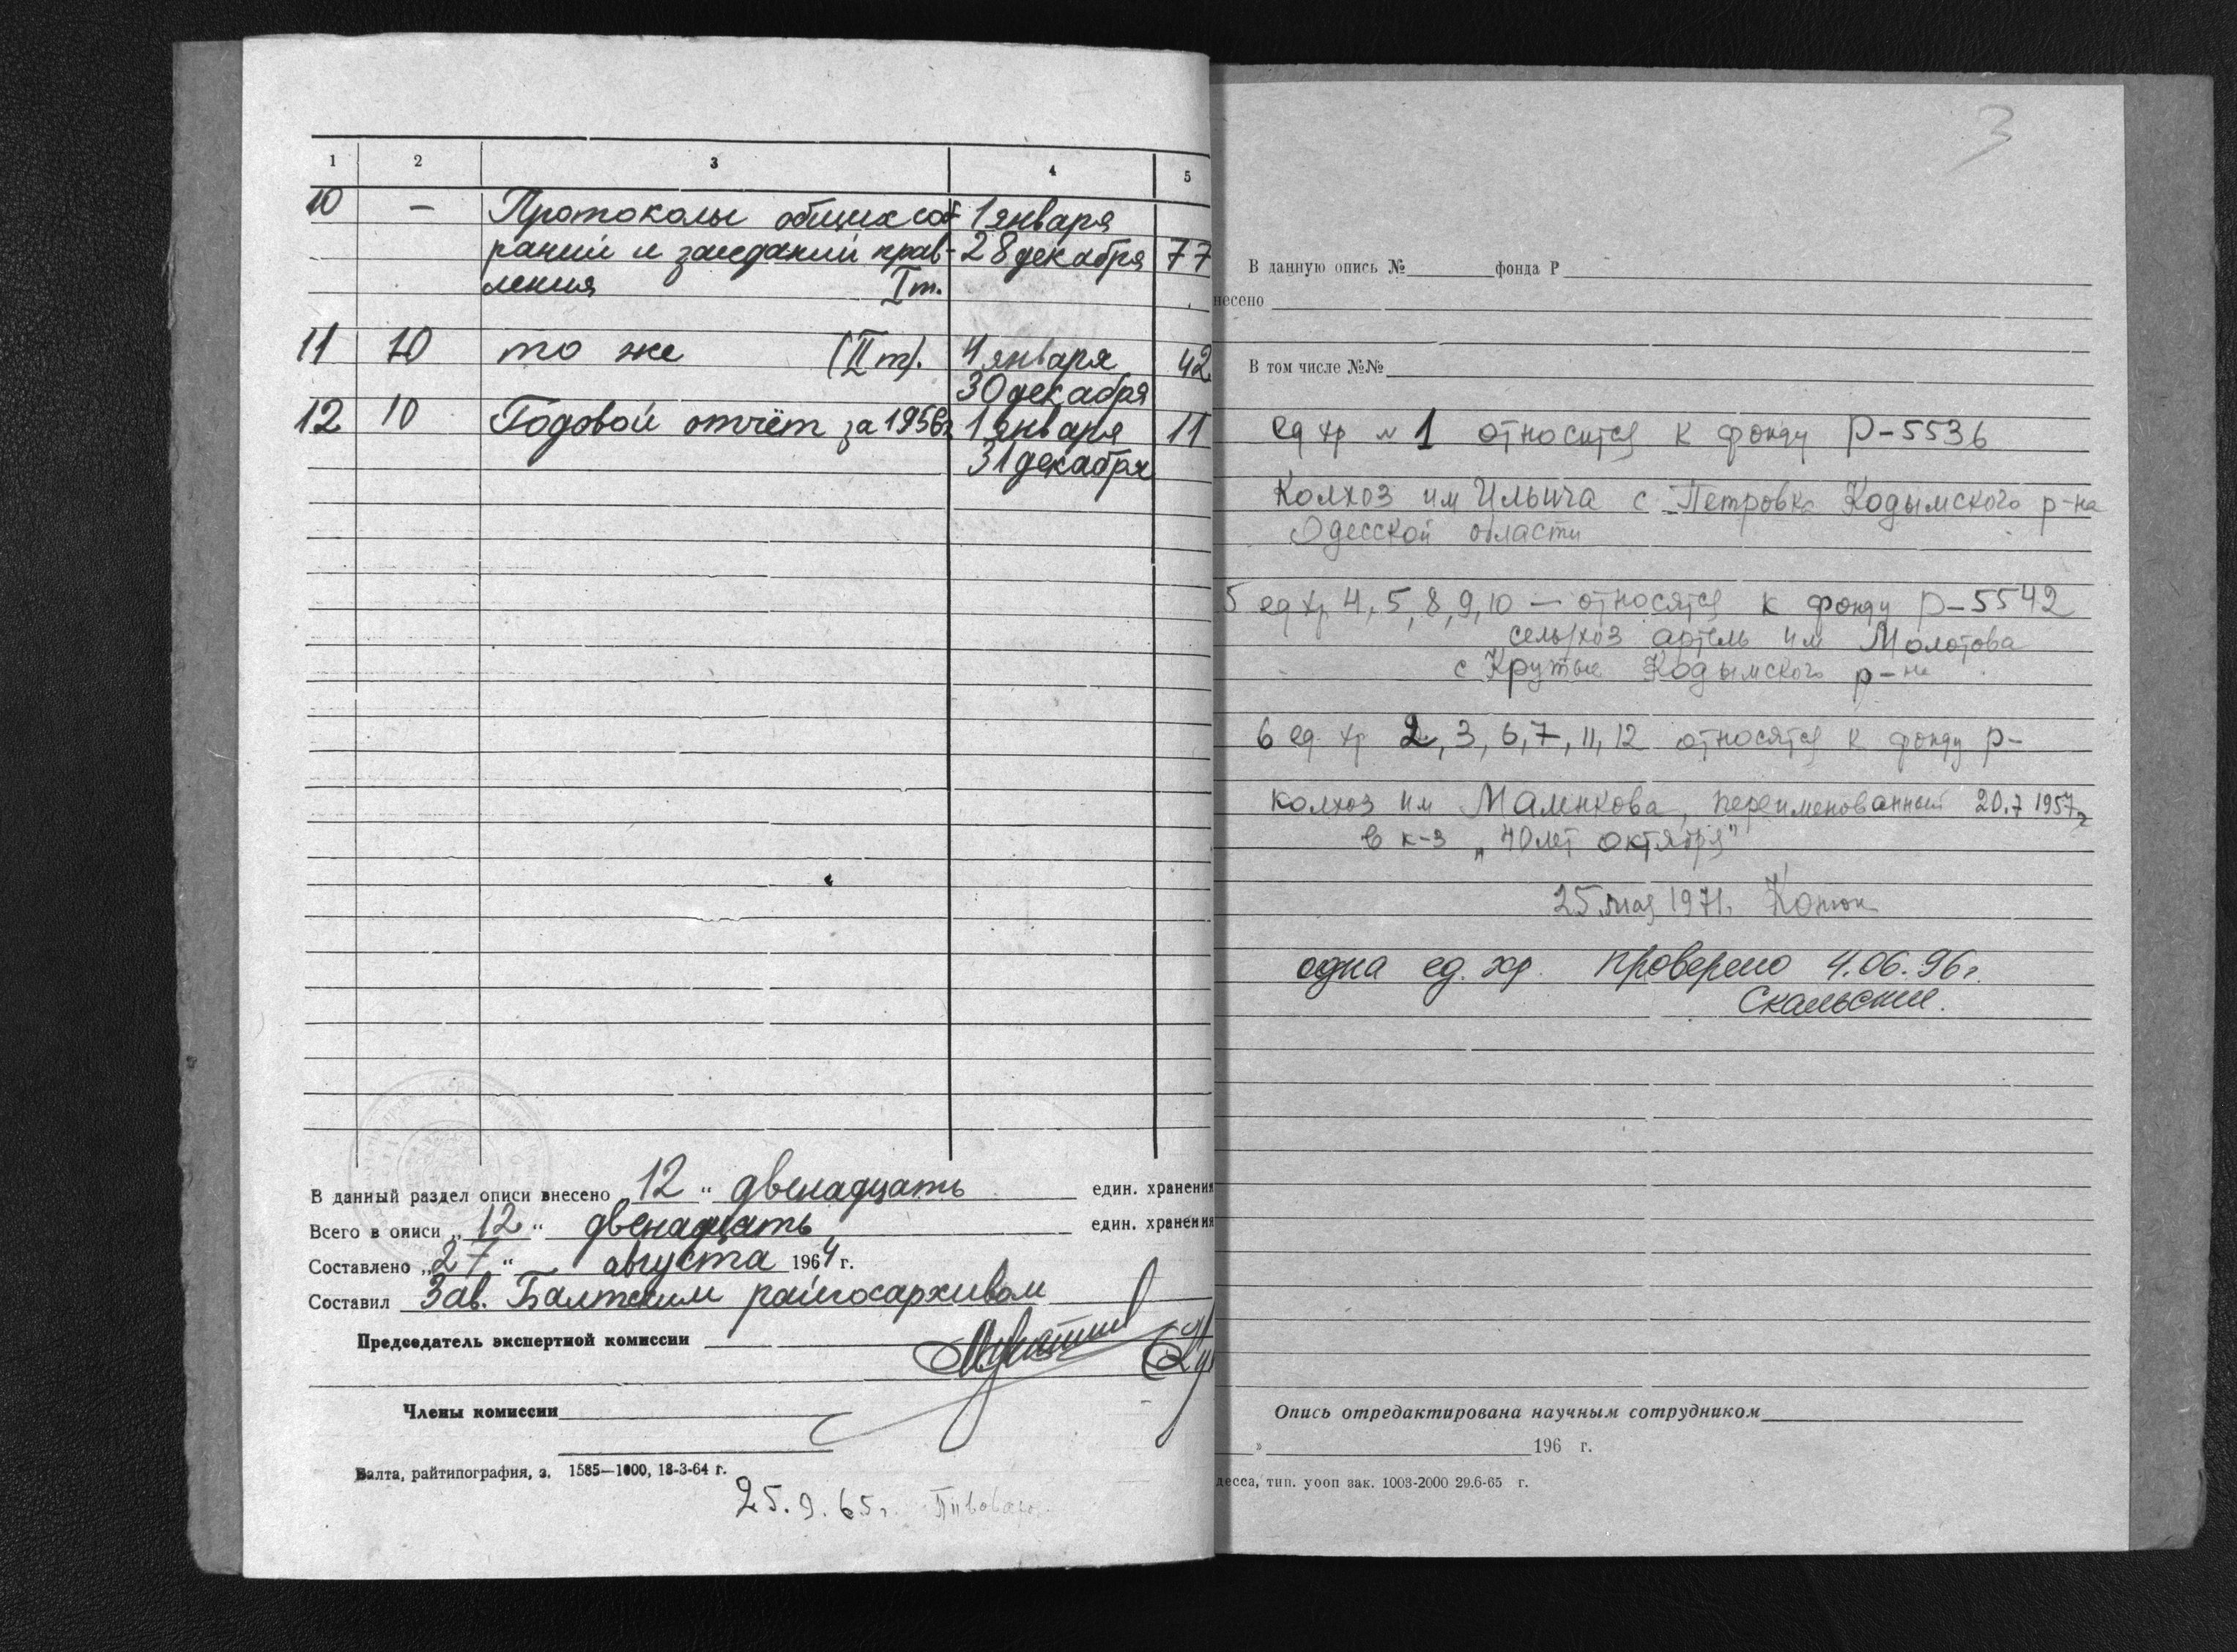 1 2 3 4 5
10 — Протоколы общих соб 1 января
раний и заседаний прав- 28 декабря 77
ления I т.
11 10 то же (II т). 4 января 42
30 декабря
12 10 Годовой отчёт за 1956г 1 января 11
31 декабря
В данный раздел описи внесено „12“ двенадцать един. хранения
Всего в описи „12“ двенадцать един. хранения
Составлено „27“ августа 1964 г.
Составил Зав. Балтским райгосархивом
Председатель экспертной комиссии
Члены комиссии
Балта, райтипография, з. 1585—1000, 18-3-64 г.
25.9.65г. Пивовар
3
В данную опись № фонда Р
несено
В том числе №№
ед хр № 1 относится к фонду Р-5536
Колхоз им Ильича с Петровка Кодымского р-на
Одесской области
5 ед хр 4, 5, 8, 9, 10 — относятся к фонду Р-5542
сельхоз артель им Молотова
с Крутые Кодымского р-на
6 ед. хр 2, 3, 6, 7, 11, 12 относятся к фонду р-
колхоз им Маленкова, переименованный 20.7 1957г
в к-з „40 лет октября"
25 мая 1971.
одна ед. хр. проверено 4.06.96г.
Опись отредактирована научным сотрудником
» 196 г.
десса, тип. уооп зак. 1003-2000 29.6-65 г.